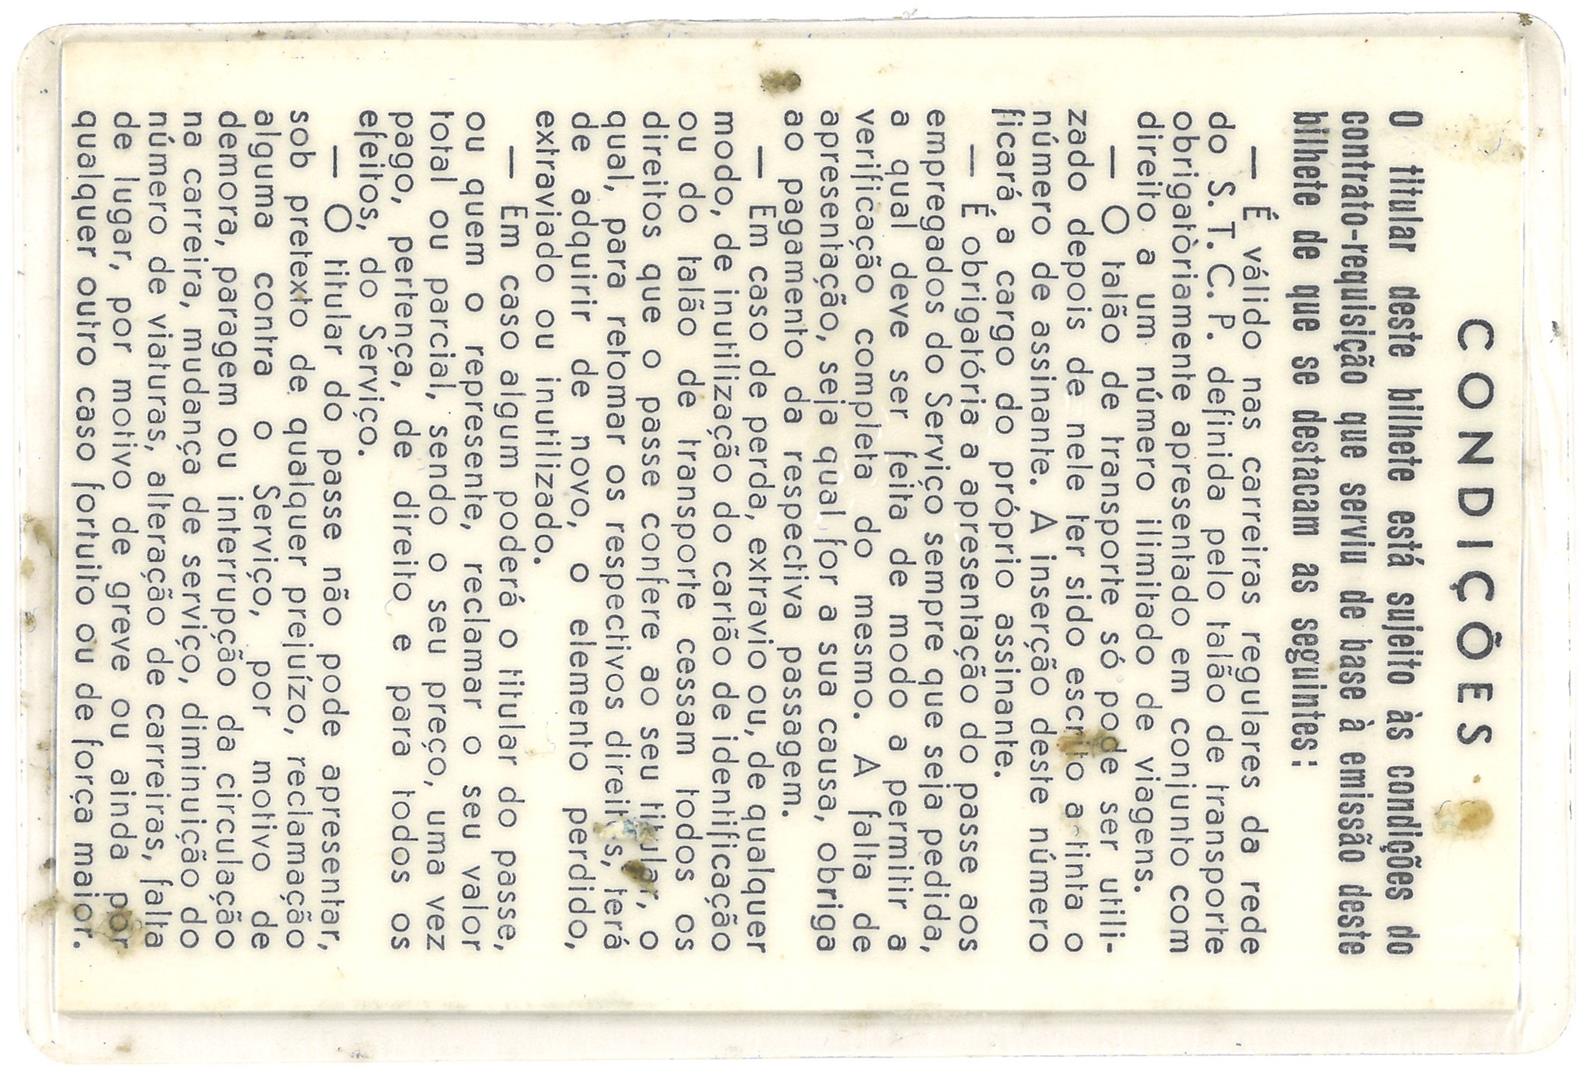 CONDIÇÕES
O titular deste bilhete está sujeito às condições do
contrato-requisição que serviu de base à emissão deste
bilhete de que se destacam as seguintes:
— É válido nas carreiras regulares da rede
do S. T. C. P. definida pelo talão de transporte
obrigatòriamente apresentado em conjunto com
direito a um número ilimitado de viagens.
— O talão de transporte só pode ser utili-
zado depois de nele ter sido escrito a tinta o
número de assinante. A inserção deste número
ficará a cargo do próprio assinante.
— É obrigatória a apresentação do passe aos
empregados do Serviço sempre que seja pedida,
a qual deve ser feita de modo a permitir a
verificação completa do mesmo. A falta de
apresentação, seja qual for a sua causa, obriga
ao pagamento da respectiva passagem.
— Em caso de perda, extravio ou, de qualquer
modo, de inutilização do cartão de identificação
ou do talão de transporte cessam todos os
direitos que o passe confere ao seu titular, o
qual, para retomar os respectivos direitos, terá
de adquirir de novo, o elemento perdido,
extraviado ou inutilizado.
— Em caso algum poderá o titular do passe,
ou quem o represente, reclamar o seu valor
total ou parcial, sendo o seu preço, uma vez
pago, pertença, de direito e para todos os
efeitos, do Serviço.
— O titular do passe não pode apresentar,
sob pretexto de qualquer prejuízo, reclamação
alguma contra o Serviço, por motivo de
demora, paragem ou interrupção da circulação
na carreira, mudança de serviço, diminuição do
número de viaturas, alteração de carreiras, falta
de lugar, por motivo de greve ou ainda por
qualquer outro caso fortuito ou de força maior.